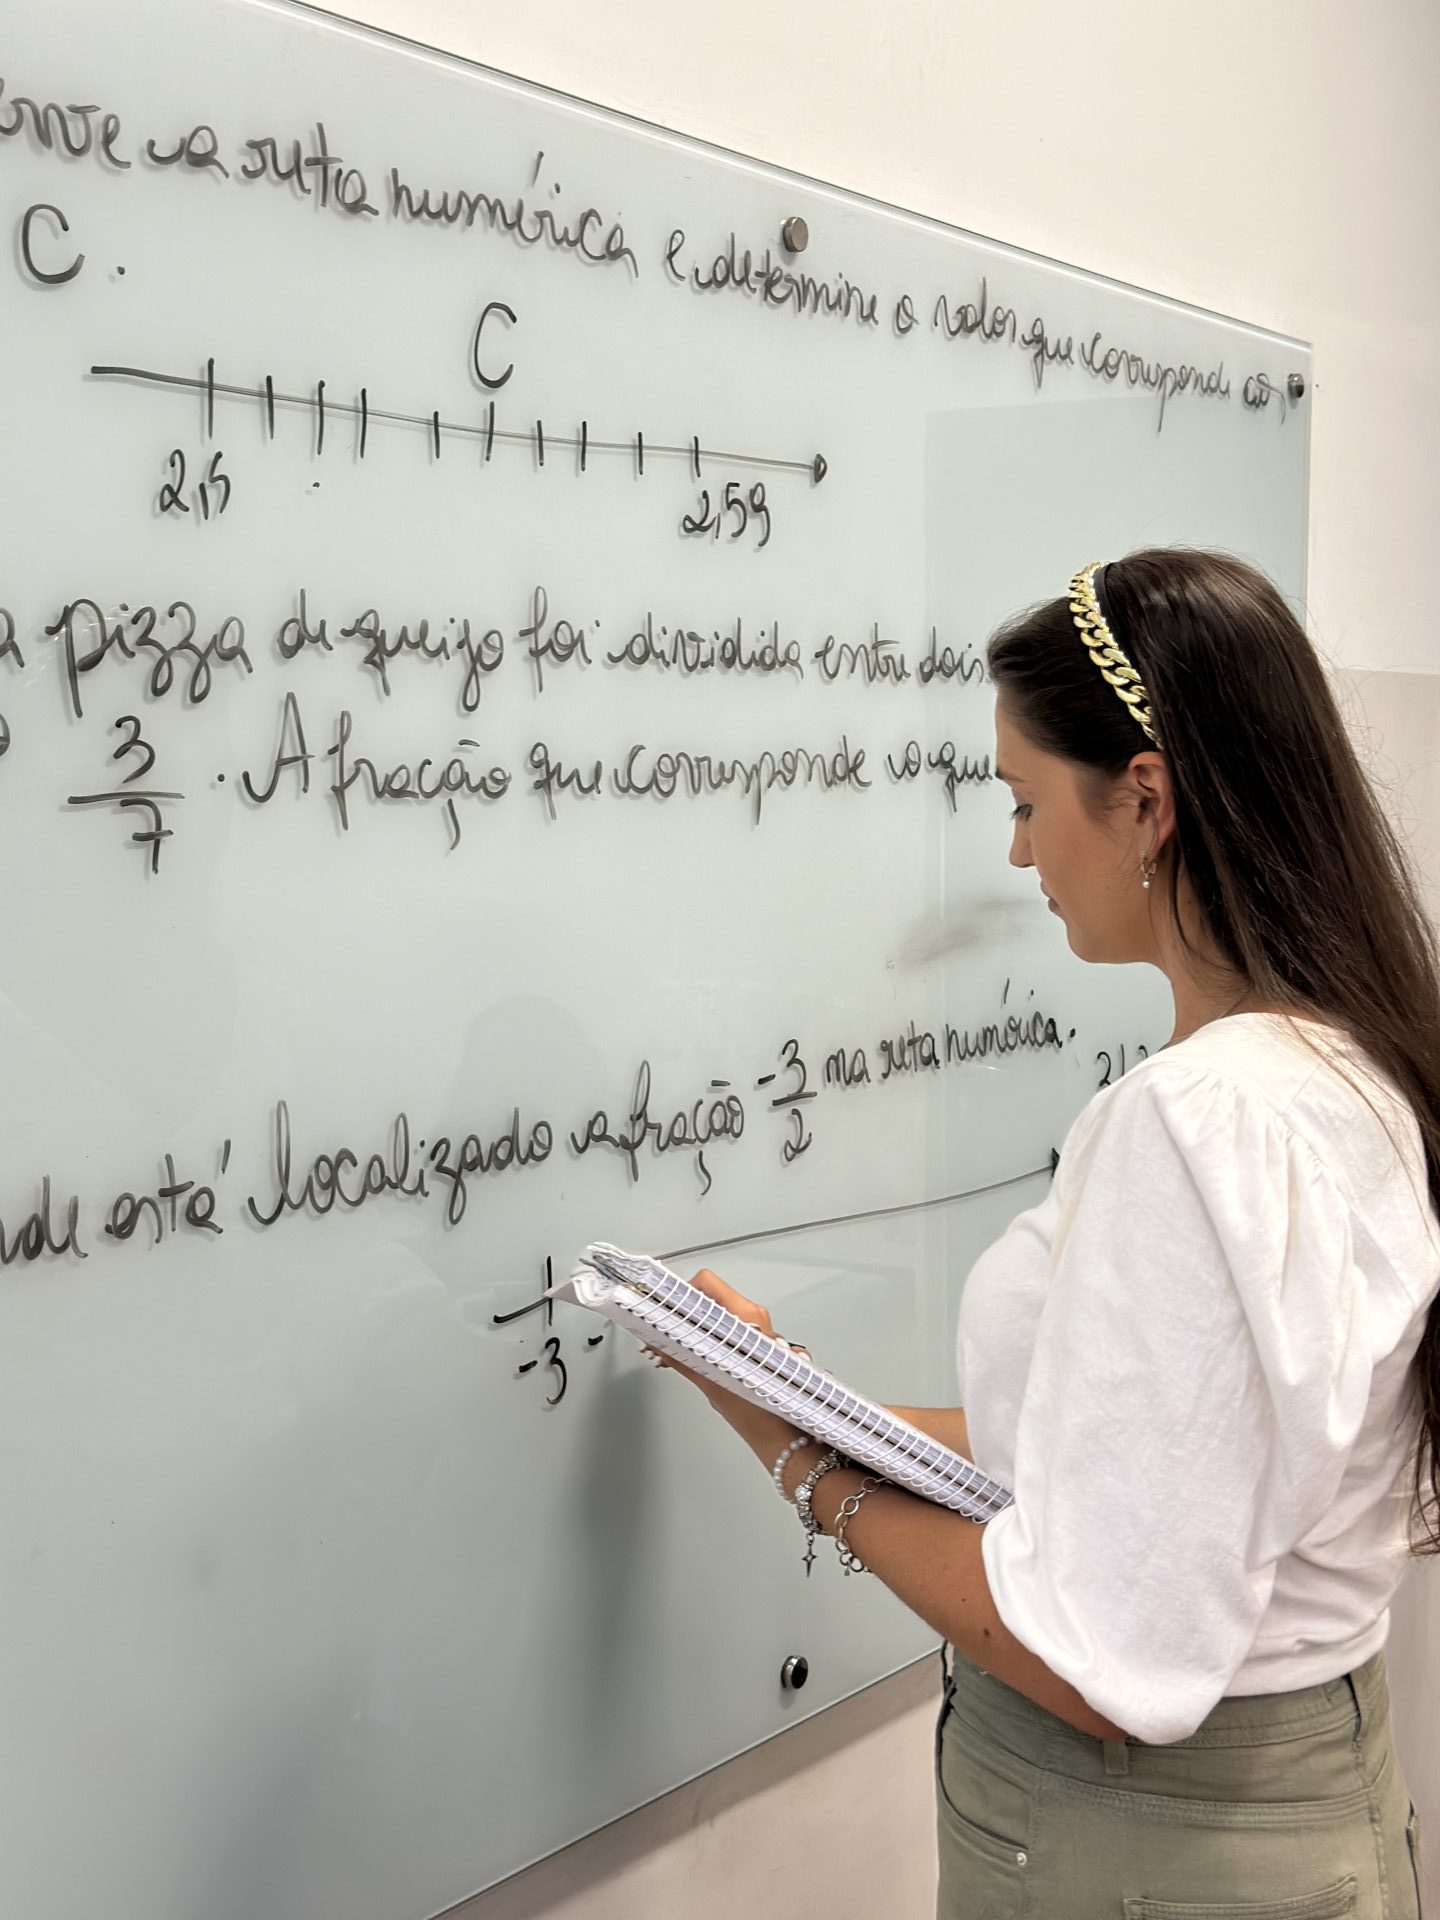 a reta numérica e determine o valor que corresponde ao
C.
C
2,5 2,59
pizza de queijo foi dividida entre dois
3/7 . A fração que corresponde o que
está localizado a fração -3/2 na reta numérica.
-3 -